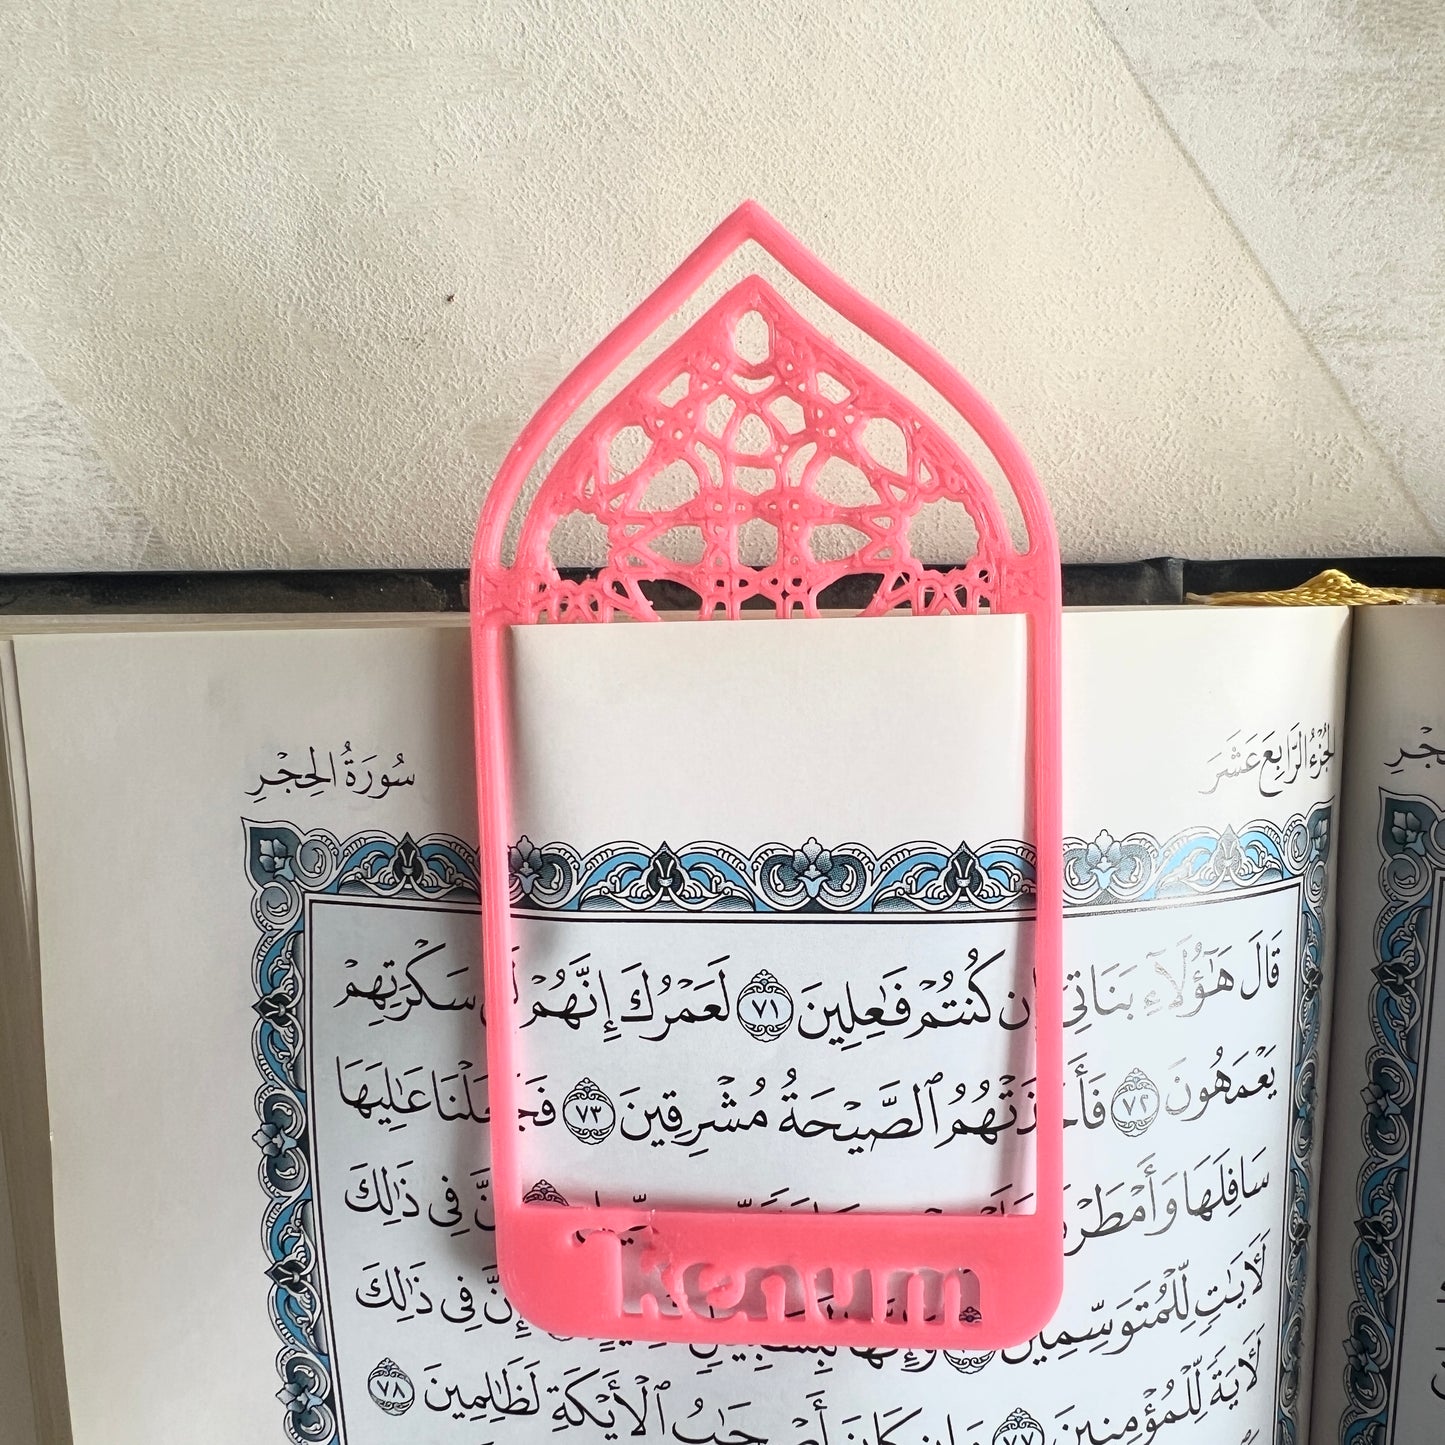 سُورَةُ الحِجْرِ
الجُزْءُ الرَّابِعَ عَشَرَ
قَالَ هَٰٓؤُلَآءِ بَنَاتِيٓ إِن كُنتُمْ فَٰعِلِينَ ٧١ لَعَمْرُكَ إِنَّهُمْ سَكْرَتِهِمْ
يَعْمَهُونَ ٧٢ فَأَخَذَتْهُمُ ٱلصَّيْحَةُ مُشْرِقِينَ ٧٣ فَجَعَلْنَا عَٰلِيَهَا
سَافِلَهَا وَأَمْطَرْنَا
فِي ذَٰلِكَ
لَأٓيَٰتٍ لِّلْمُتَوَسِّمِينَ وَإِنَّهَا لَبِسَبِيلٍ إِنَّ فِي ذَٰلِكَ
لَأٓيَةً لِّلْمُؤْمِنِينَ ٧٧ وَإِن كَانَ أَصْحَٰبُ ٱلْأَيْكَةِ لَظَٰلِمِينَ ٧٨
kenum